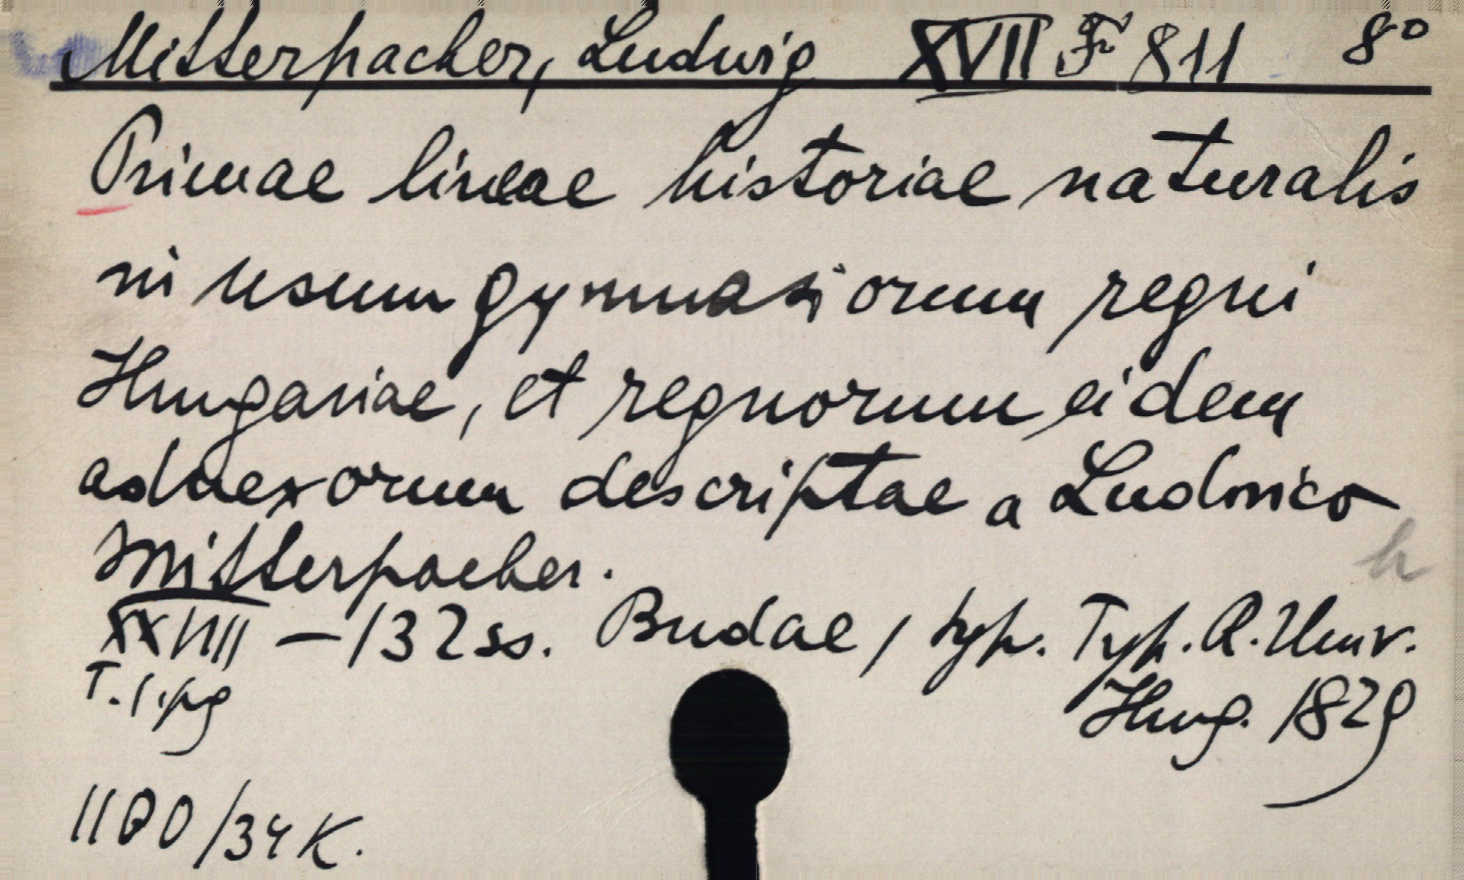 Mitterpacher, Ludwig XVII F 811 8°
Primae lineae historiae naturalis
in usum gymnasiorum regni
Hungariae, et regnorum eidem
adnexorum descriptae a Ludovico
Mitterpacher.
h
XXVIII - 132 ss. Budae, typ. Typ. R. Univ.
T. 1. pg
Hung. 1829
1100/34 K.